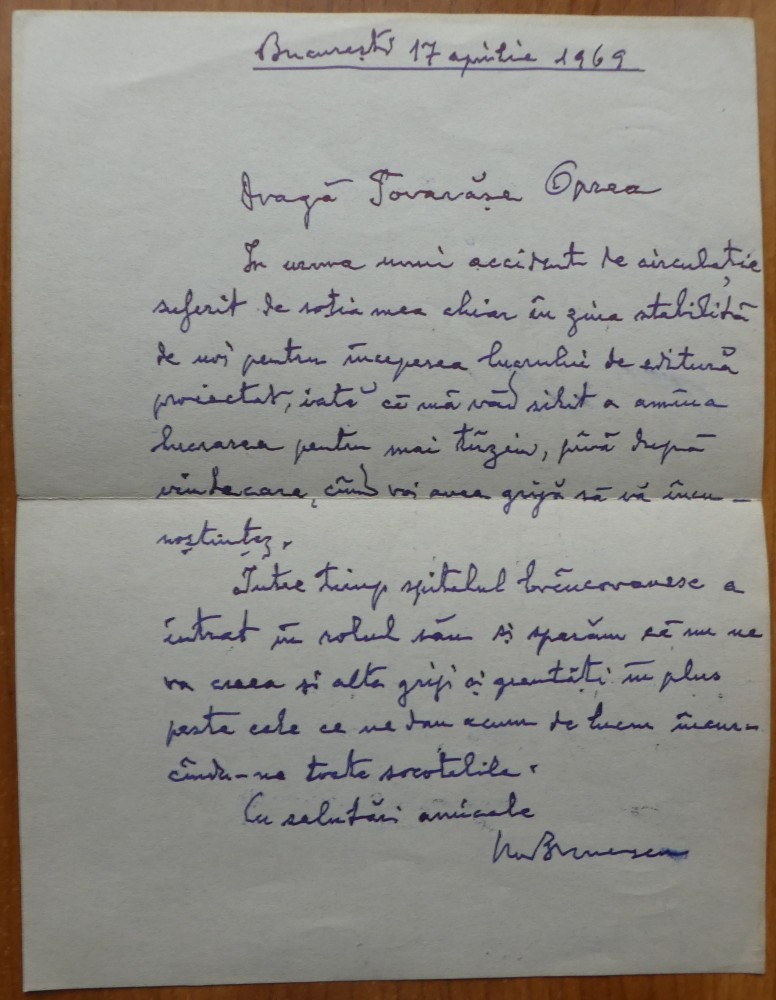 București 17 aprilie 1969
Dragă Tovarășe Oprea
In urma unui accident de circulație
suferit de soția mea chiar în ziua stabilită
de noi pentru începerea lucrului de editură
proiectat, iată că mă văd silit a amîna
lucrarea pentru mai tîrziu, pînă după
vindecare, cînd voi avea grijă să vă încu-
noștințez.
Între timp spitalul brîncovenesc a
intrat în rolul său și sperăm că nu ne
va creea și alte griji și greutăți în plus
peste cele ce ne dau acum de lucru încur-
cîndu-ne toate socotelile.
Cu salutări amicale